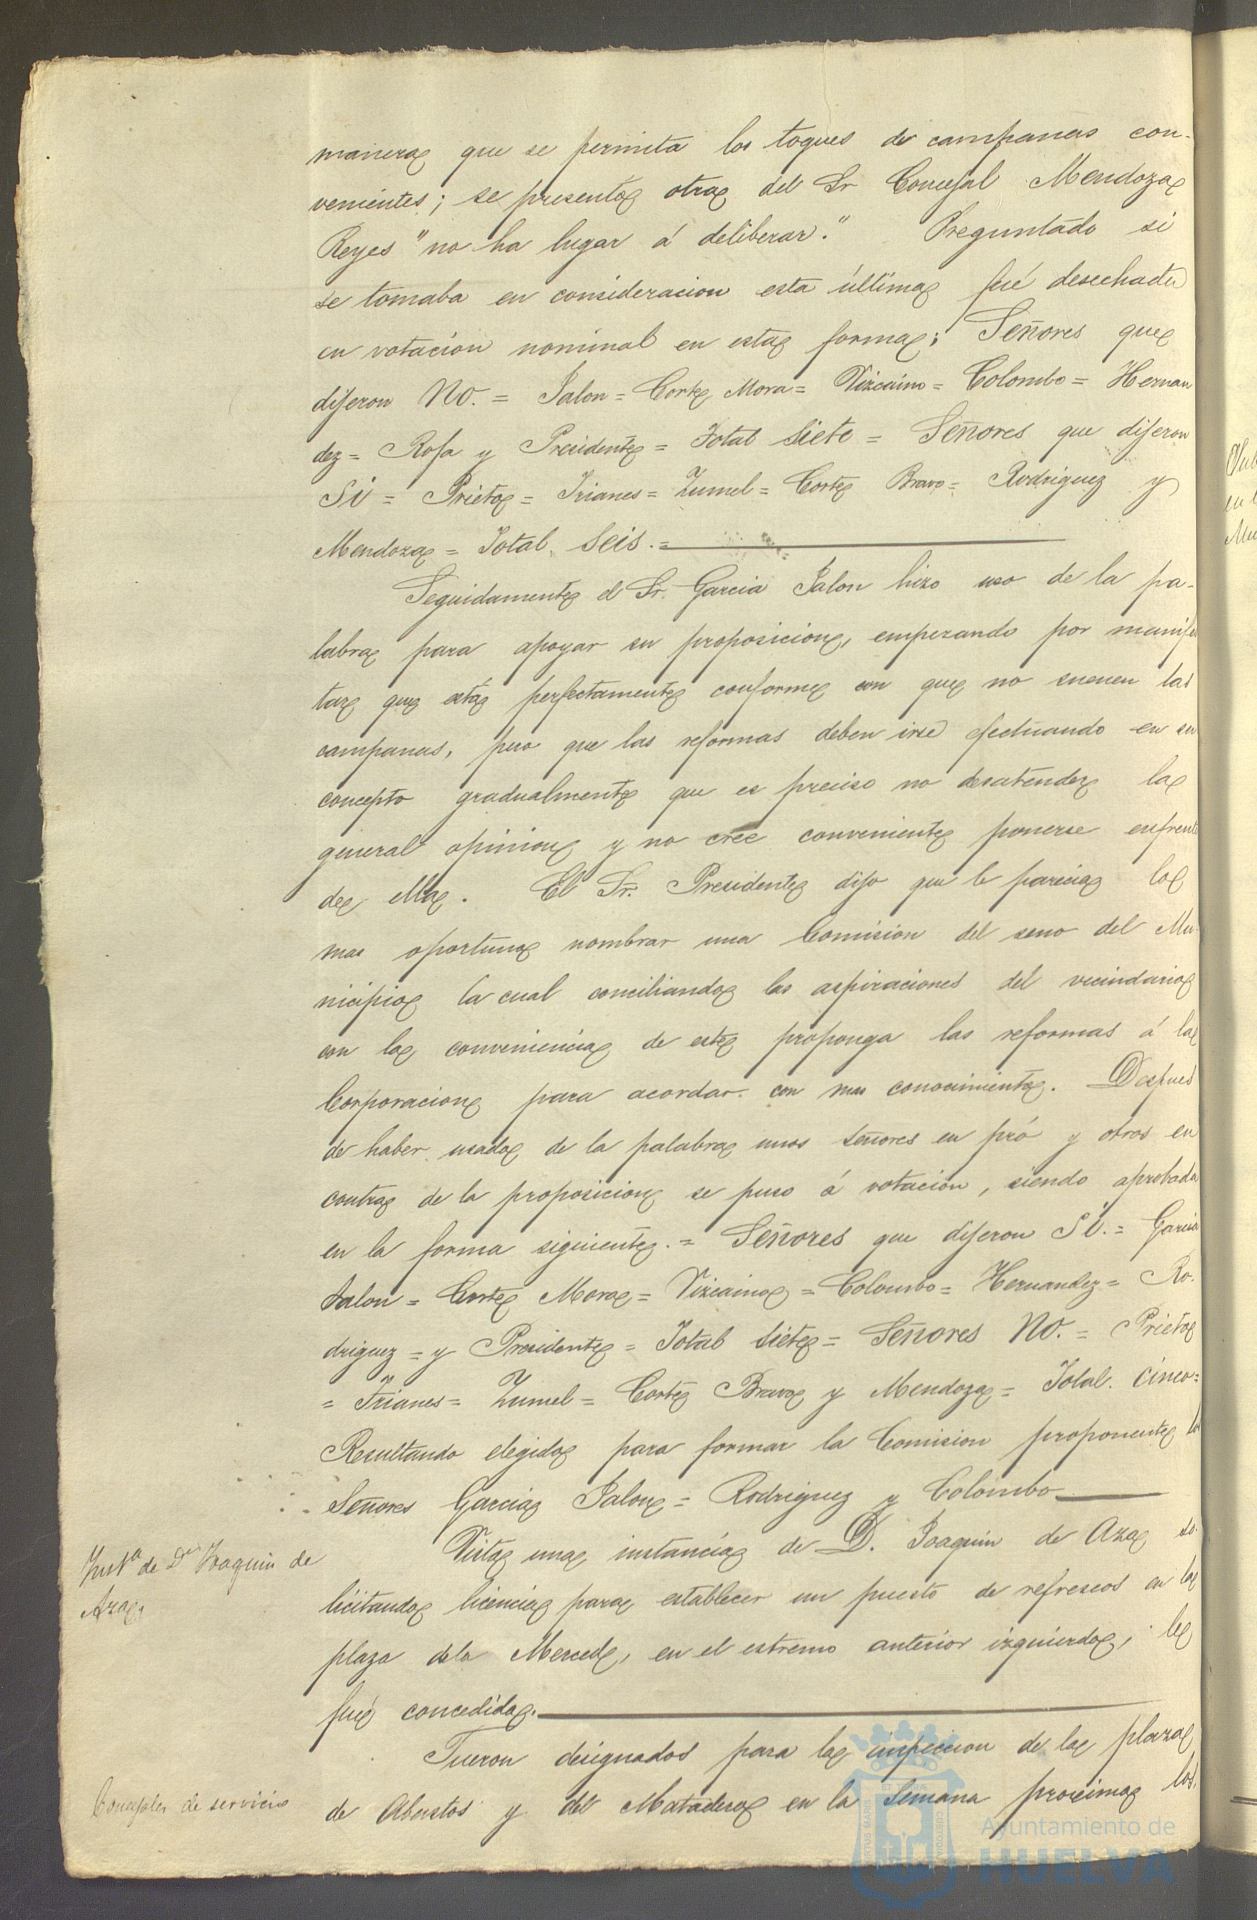 manera que se permita los toques de campanas con-
venientes; se presentó otra del Sr Concejal Mendoza
Reyes "no ha lugar á deliberar." Preguntado si
se tomaba en consideracion esta última fué desechada
en votacion nominal en esta forma; Señores que
dijeron No. = Jalon = Corte Mora = Vizcaino = Colombo = Hernan
dez = Rofa y Presidente = Total Siete = Señores que dijeron
Sí = Prieto = Trianes = Zumel = Corte Bravo = Rodriguez y
Mendoza = Total Seis. =
Seguidamente el Sr. Garcia Jalon hizo uso de la pa-
labra para apoyar su proposicion, empezando por manifes
tar que está perfectamente conforme con que no suenen las
campanas, pero que las reformas deben irse efectuando en su
concepto gradualmente que es preciso no desatender la
general opinion y no cree conveniente ponerse enfrente
de ella. El Sr. Presidente dijo que le parecia lo
mas oportuno nombrar una Comision del seno del Mu-
nicipio la cual conciliando las aspiraciones del vecindario
con la conveniencia de este proponga las reformas á la
Corporacion para acordar con mas conocimiento. Despues
de haber usado de la palabra unos señores en pró y otros en
contra de la proposicion se puso á votacion, siendo aprobada
en la forma siguiente. = Señores que dijeron Sí. = Garcia
Jalon = Corte Mora = Vizcaino = Colombo = Hernandez = Ro-
driguez = y Presidente = Total Siete = Señores No. = Prieto
= Trianes = Zumel = Corte Bravo y Mendoza = Total. Cinco =
Resultando elegido para formar la Comision proponente los
Señores Garcia Jalon = Rodriguez y Colombo
Inst.ª de Dn Joaquin de
Aza.
Vista una instancia de D. Joaquin de Aza so-
licitando licencia para establecer un puesto de refrescos en la
plaza de la Merced, en el estremo anterior izquierdo, le
fué concedida.
Concejales de servicio
Fueron designados para la inspeccion de la plaza
de Abastos y del Matadero en la Semana proxima los
Ayuntamiento de
HUELVA